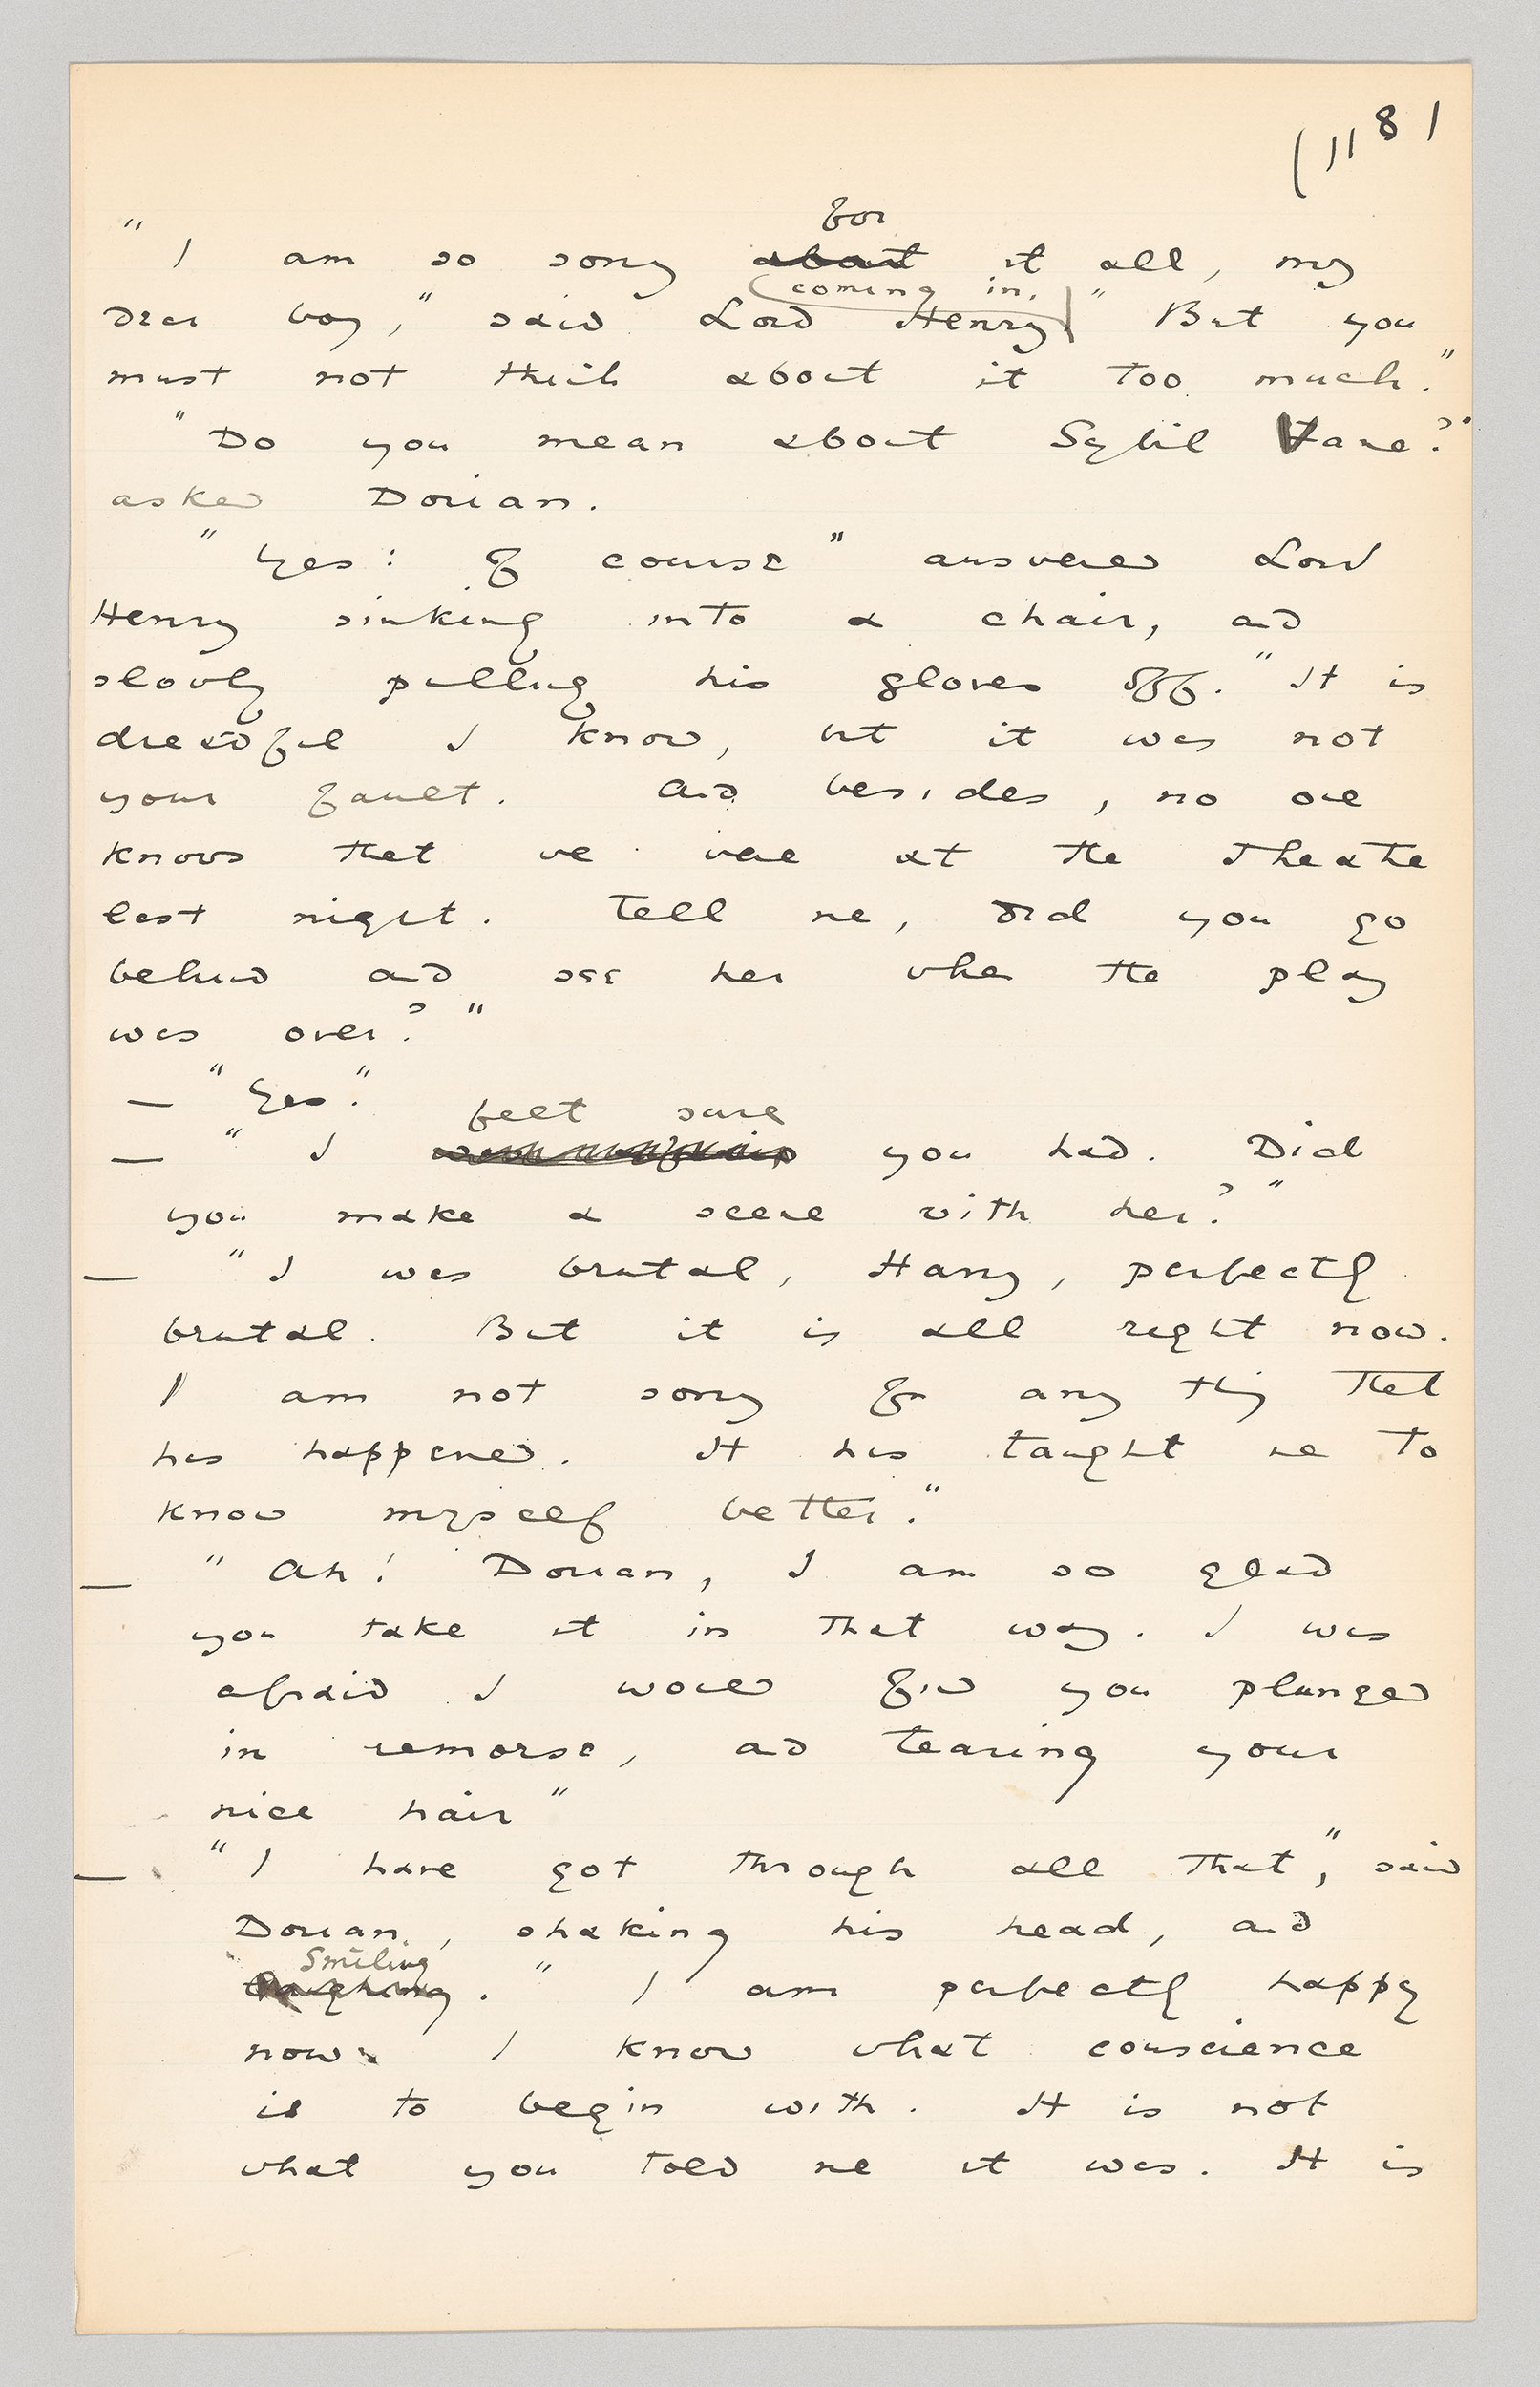 (118 1
for
"I am so sorry about it all, my
coming in.
dear boy," said Lord Henry "But you
must not think about it too much."
"Do you mean about Sybil Vane?"
asked Dorian.
"Yes: of course" answered Lord
Henry sinking into a chair, and
slowly pulling his gloves off. "It is
dreadful I know, but it was not
your fault. And besides, no one
knows that we were at the Theatre
last night. Tell me, did you go
behind and see her when the play
was over?"
— "Yes."
felt sure
— "I you had. Did
you make a scene with her?"
— "I was brutal, Harry, perfectly
brutal. But it is all right now.
I am not sorry for any thing that
has happened. It has taught me to
know myself better."
— "Ah! Dorian, I am so glad
you take it in that way. I was
afraid I would find you plunged
in remorse, and tearing your
nice hair"
— "I have got through all that," said
Dorian, shaking his head, and
Smiling
laughing. "I am perfectly happy
now. I know what conscience
is to begin with. It is not
what you told me it was. It is